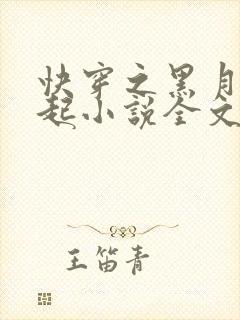 快穿之黑月
起小说全文
王笛青